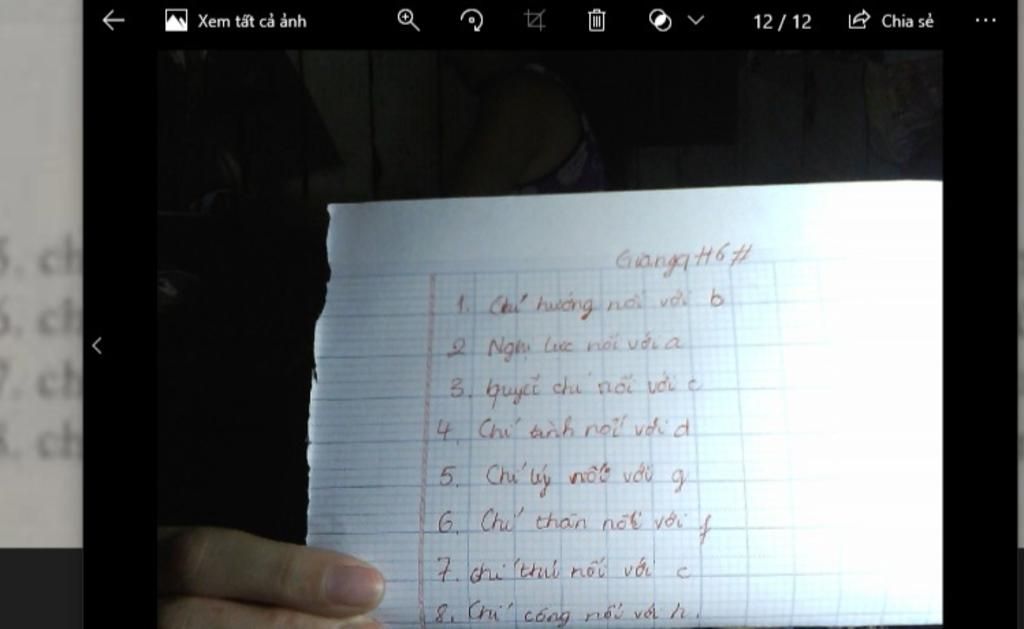 Xem tất cả ảnh
12 / 12
Chia sẻ
5. ch
6. ch
7. ch
8. ch
Giangg#6#
1. Chí hướng nối với b
2 Nghị lực nối với a
3. quyết chí nối với c
4. Chí tình nối với d
5. Chí lý nối với g
6. Chí thân nối với f
7. chí thú nối với c
8. Chí công nối với h.